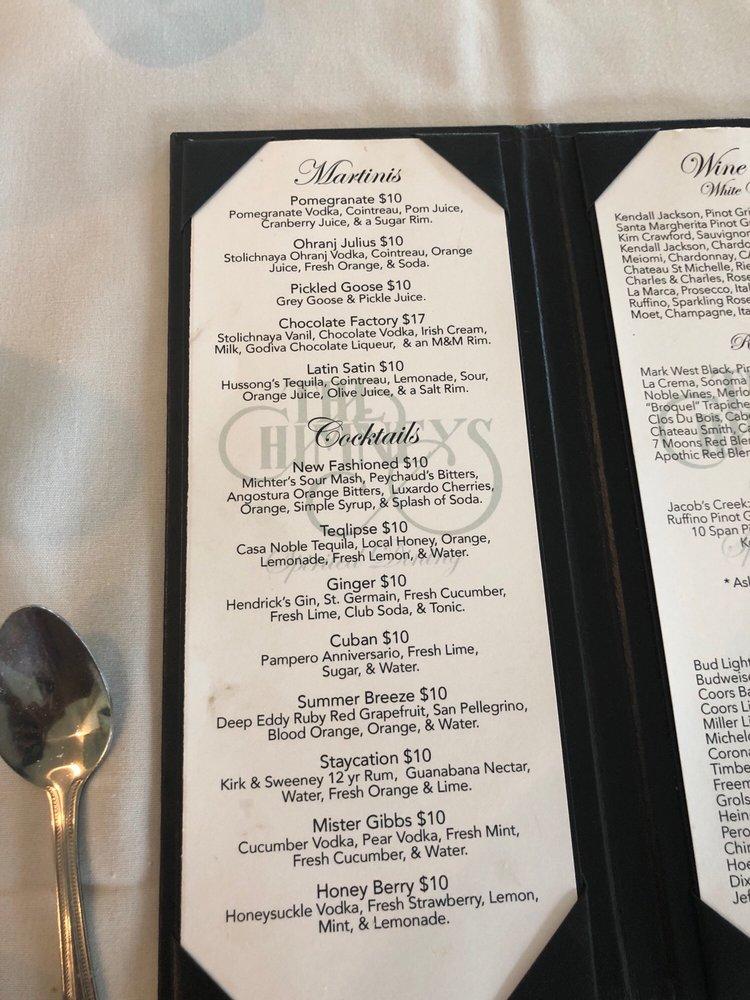 Martinis
Pomegranate $10
Pomegranate Vodka, Cointreau, Pom Juice,
Cranberry Juice, & a Sugar Rim.
Ohranj Julius $10
Stolichnaya Ohranj Vodka, Cointreau, Orange
Juice, Fresh Orange, & Soda.
Pickled Goose $10
Grey Goose & Pickle Juice.
Chocolate Factory $17
Stolichnaya Vanil, Chocolate Vodka, Irish Cream,
Milk, Godiva Chocolate Liqueur, & an M&M Rim.
Latin Satin $10
Hussong's Tequila, Cointreau, Lemonade, Sour,
Orange Juice, Olive Juice, & a Salt Rim.
Cocktails
New Fashioned $10
Michter's Sour Mash, Peychaud's Bitters,
Angostura Orange Bitters, Luxardo Cherries,
Orange, Simple Syrup, & Splash of Soda.
Teqlipse $10
Casa Noble Tequila, Local Honey, Orange,
Lemonade, Fresh Lemon, & Water.
Ginger $10
Hendrick's Gin, St. Germain, Fresh Cucumber,
Fresh Lime, Club Soda, & Tonic.
Cuban $10
Pampero Anniversario, Fresh Lime,
Sugar, & Water.
Summer Breeze $10
Deep Eddy Ruby Red Grapefruit, San Pellegrino,
Blood Orange, Orange, & Water.
Staycation $10
Kirk & Sweeney 12 yr Rum, Guanabana Nectar,
Water, Fresh Orange & Lime.
Mister Gibbs $10
Cucumber Vodka, Pear Vodka, Fresh Mint,
Fresh Cucumber, & Water.
Honey Berry $10
Honeysuckle Vodka, Fresh Strawberry, Lemon,
Mint, & Lemonade.
Wine
White
Kendall Jackson, Pinot Gri
Santa Margherita Pinot G
Kim Crawford, Sauvignon
Kendall Jackson, Chardo
Meiomi, Chardonnay, CA
Chateau St Michelle, Rie
Charles & Charles, Rose
La Marca, Prosecco, Ital
Ruffino, Sparkling Rose
Moet, Champagne, Ita
Mark West Black, Pin
La Crema, Sonoma
Noble Vines, Merlo
"Broquel" Trapiche
Clos Du Bois, Cabe
Chateau Smith, Ca
7 Moons Red Blen
Apothic Red Blen
Jacob's Creek:
Ruffino Pinot G
10 Span Pi
* Asl
Bud Light
Budweise
Coors Ba
Coors Li
Miller Li
Michelo
Corona
Timbe
Freem
Grols
Hein
Pero
Chi
Hoe
Dix
Jef